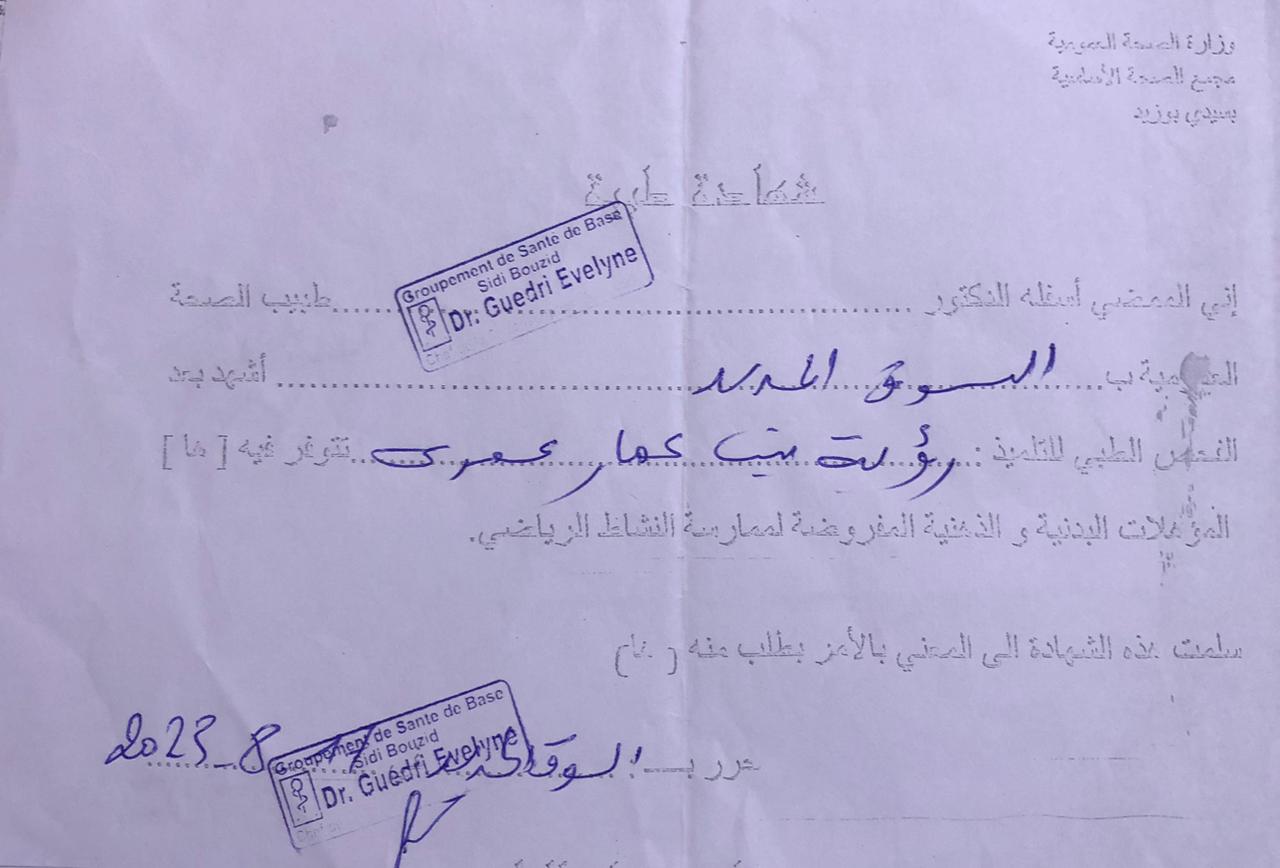 وزارة الصحة العمومية
مجمع الصحة الأساسية
بسيدي بوزيد
شهادة طبية
Groupement de Santé de Base
Sidi Bouzid
Dr. Guedri Evelyne
إني الممضي أسفله الدكتور ........ طبيب الصحة
العمومية ب... السوق الجديد ........ أشهد بعد
الفحص الطبي للتلميذ : رؤية بنت عمار عمري تتوفر فيه [ ها ]
المؤهلات البدنية و الذهنية المفروضة لممارسة النشاط الرياضي.
سلمت هذه الشهادة الى المعني بالأمر بطلب منه ( ها )
حرر بـ السوق الجديد 17 - 8 - 2023
Groupement de Santé de Base
Sidi Bouzid
Dr. Guedri Evelyne